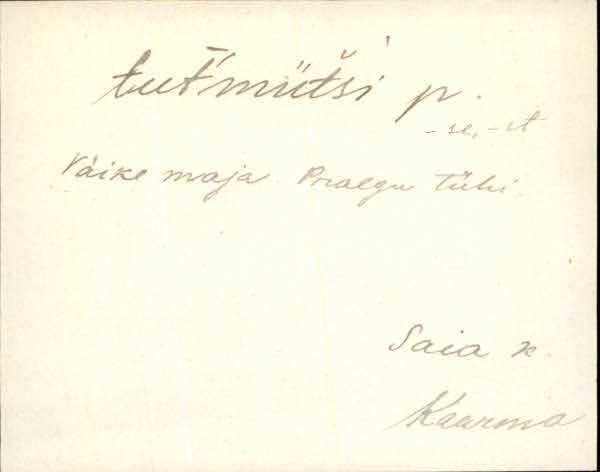 tut´mütši p.
-se, -st
Väike maja. Praegu tühi.
Saia k
Kaarma